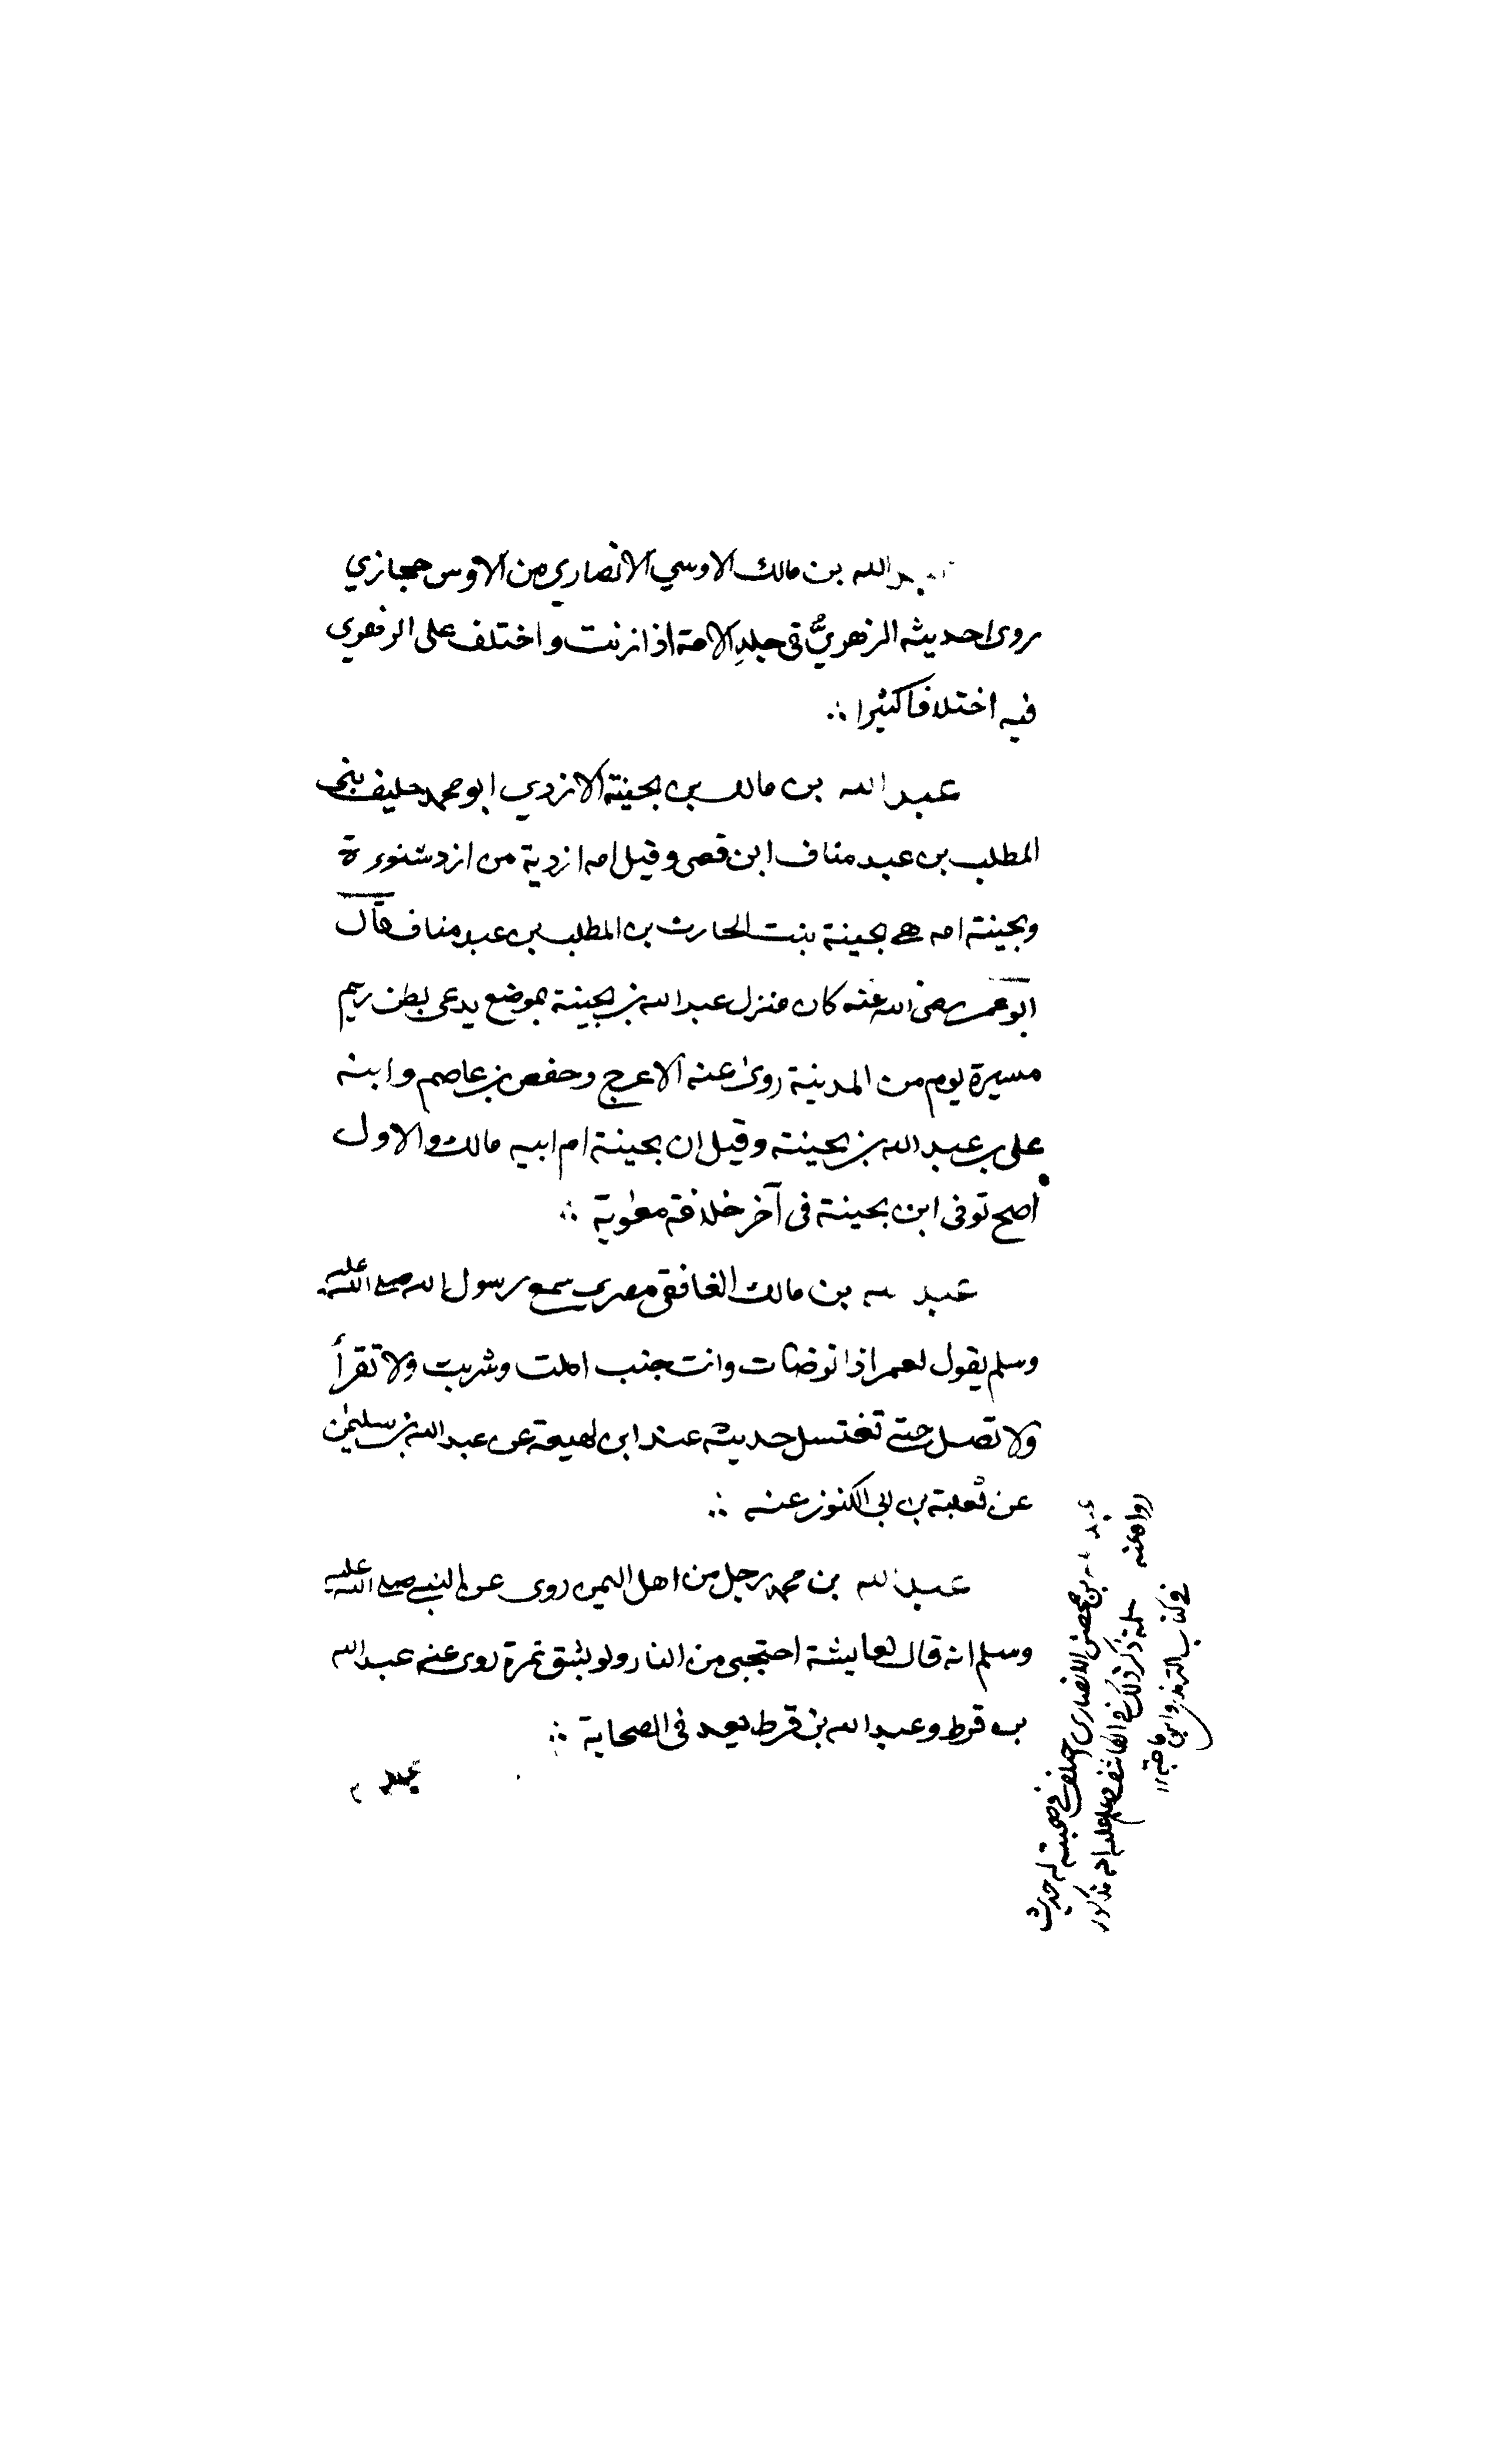 عبد الله بن مالك الاوسي الانصاري من الاوس حجازي
روى حديثه الزهريُّ في جلدِ الامة اذا زنت واختلف على الزهري
فيه اختلافا كثيرا ∴
عبد الله بن مالك بن بحينة الازدي ابو محمد حليف بنى
المطلب بن عبد مناف ابن قصى وقيل امه ازدية من ازد شنوءة
وبحينة امه هي بحينة بنت الحارث بن المطلب بن عبد مناف قال
ابو عمر رضى الله عنه كان منزل عبد الله بن بحينة بموضع يدعى بطن ريم
مسيرة يوم من المدينة روى عنه الاعرج وحفص بن عاصم وابنه
على بن عبد الله بن بحينة وقيل ان بحينة ام ابيه مالك والاول
اصح توفى ابن بحينة فى آخر خلافة معوية ∴
عبد الله بن مالك الغافقى مصرى سمع رسول الله صلى الله عليه
وسلم يقول لعمر اذا توضات وانت جنب اكلت وشربت ولا تقرأ
ولا تصل حتى تغتسل حديثه عند ابن لهيعة عن عبد الله بن سليمن
عن ثعلبة بن ابى الكنوز عنه ∴
عبد الله بن محمد رجل من اهل اليمن روى عن النبي صلى الله عليه
وسلم انه قال لعايشة احتجبى من النار ولو بشق تمرة روى عنه عبد الله
بن قرط وعبد الله بن قرط يعد فى الصحابة ∴
عبد الله بن محصن الانصارى اختلف في صحبته له حديث
رواه عنه سلمة ذكر ذلك في الكاشف
في كتاب الترمذى وابن ماجة